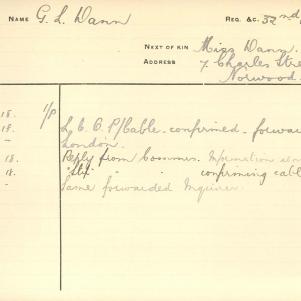 NAME G. L. Dann REG. &C. 32nd
NEXT OF KIN Miss Dann.
ADDRESS 7 Charles Stre
Norwood.
18. 1/P
18. L. C. O. P/Cable. confirmed. forwar
- London.
18. Reply from Commrs. Information
18. " " confirming cabl
- Same forwarded Inquirer.